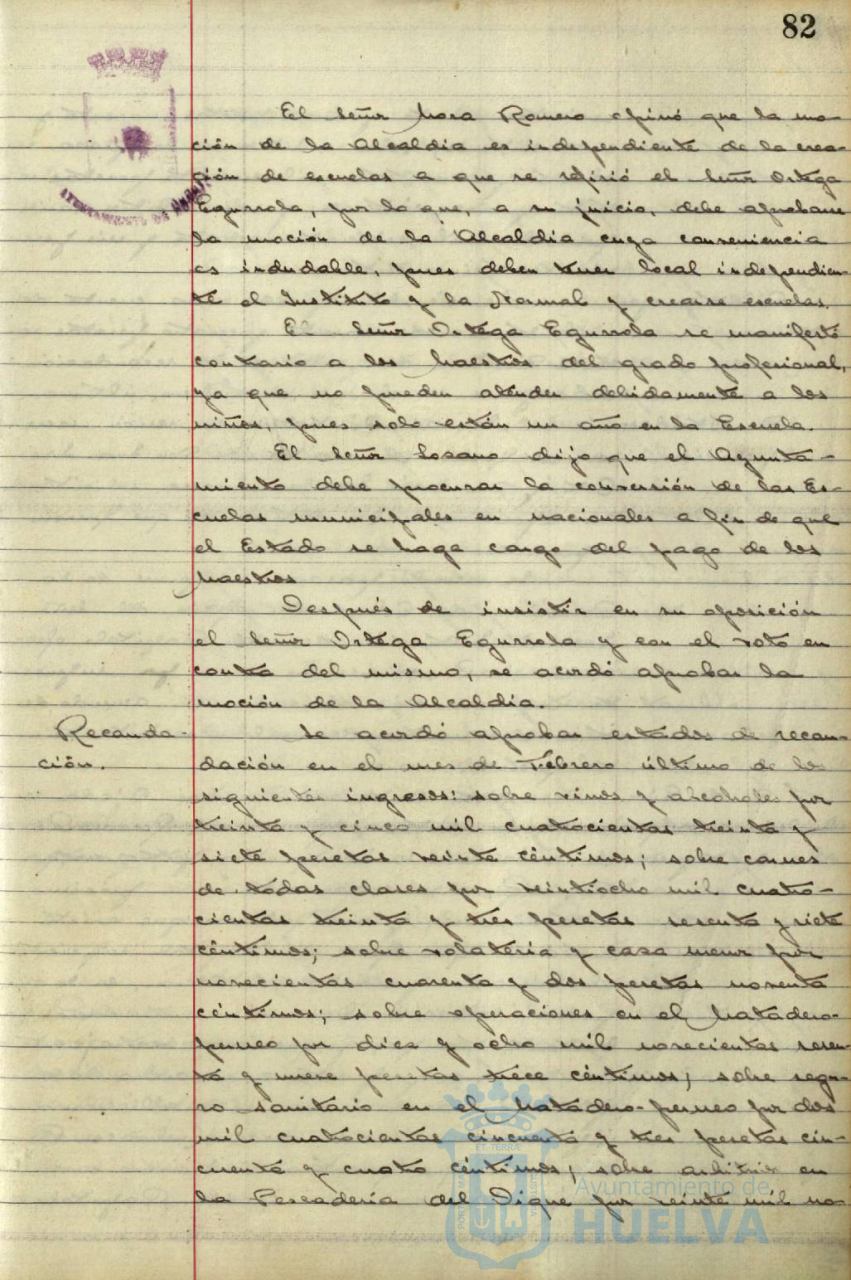 82
AYUNTAMIENTO DE HUELVA
El Señor Mora Romero opinó que la mo-
ción de la Alcaldía es independiente de la crea-
ción de escuelas a que se refirió el Señor Ortega
Egurrola, por lo que, a su juicio, debe aprobarse
la moción de la Alcaldía cuya conveniencia
es indudable, pues deben tener local independien-
te el Instituto y la Normal y crearse escuelas.
El Señor Ortega Egurrola se manifestó
contrario a los Maestros del grado profesional,
ya que no pueden atender debidamente a los
niños, pues solo están un año en la Escuela.
El Señor Lozano dijo que el Ayunta-
miento debe procurar la conversión de las Es-
cuelas municipales en nacionales a fin de que
el Estado se haga cargo del pago de los
Maestros
Después de insistir en su oposición
el Señor Ortega Egurrola y con el voto en
contra del mismo, se acordó aprobar la
moción de la Alcaldía.
Recauda-
ción.
Se acordó aprobar estados de recau-
dación en el mes de Febrero último de los
siguientes ingresos: sobre vinos y alcoholes por
treinta y cinco mil cuatrocientas treinta y
siete pesetas veinte céntimos; sobre carnes
de todas clases por veintiocho mil cuatro-
cientas treinta y tres pesetas sesenta y siete
céntimos; sobre volatería y casa menor por
novecientas cuarenta y dos pesetas noventa
céntimos; sobre operaciones en el Matadero-
porneo por diez y ocho mil novecientas sesen-
ta y nueve pesetas trece céntimos; sobre segu-
ro sanitario en el Matadero-porneo por dos
mil cuatrocientas cincuenta y tres pesetas cin-
cuenta y cuatro céntimos; sobre arbitrios en
la Pescadería del Dique por veinte mil no-
Ayuntamiento de
HUELVA